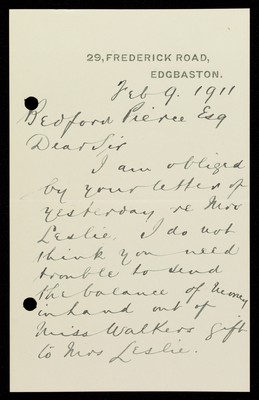 29, FREDERICK ROAD,
EDGBASTON.
Feb 9. 1911
Bedford Pierce Esq
Dear Sir
I am obliged
by your letter of
yesterday re Mrs
Leslie. I do not
think you need
trouble to send
the balance of money
in hand out of
Miss Walkers gift
to Mrs Leslie.